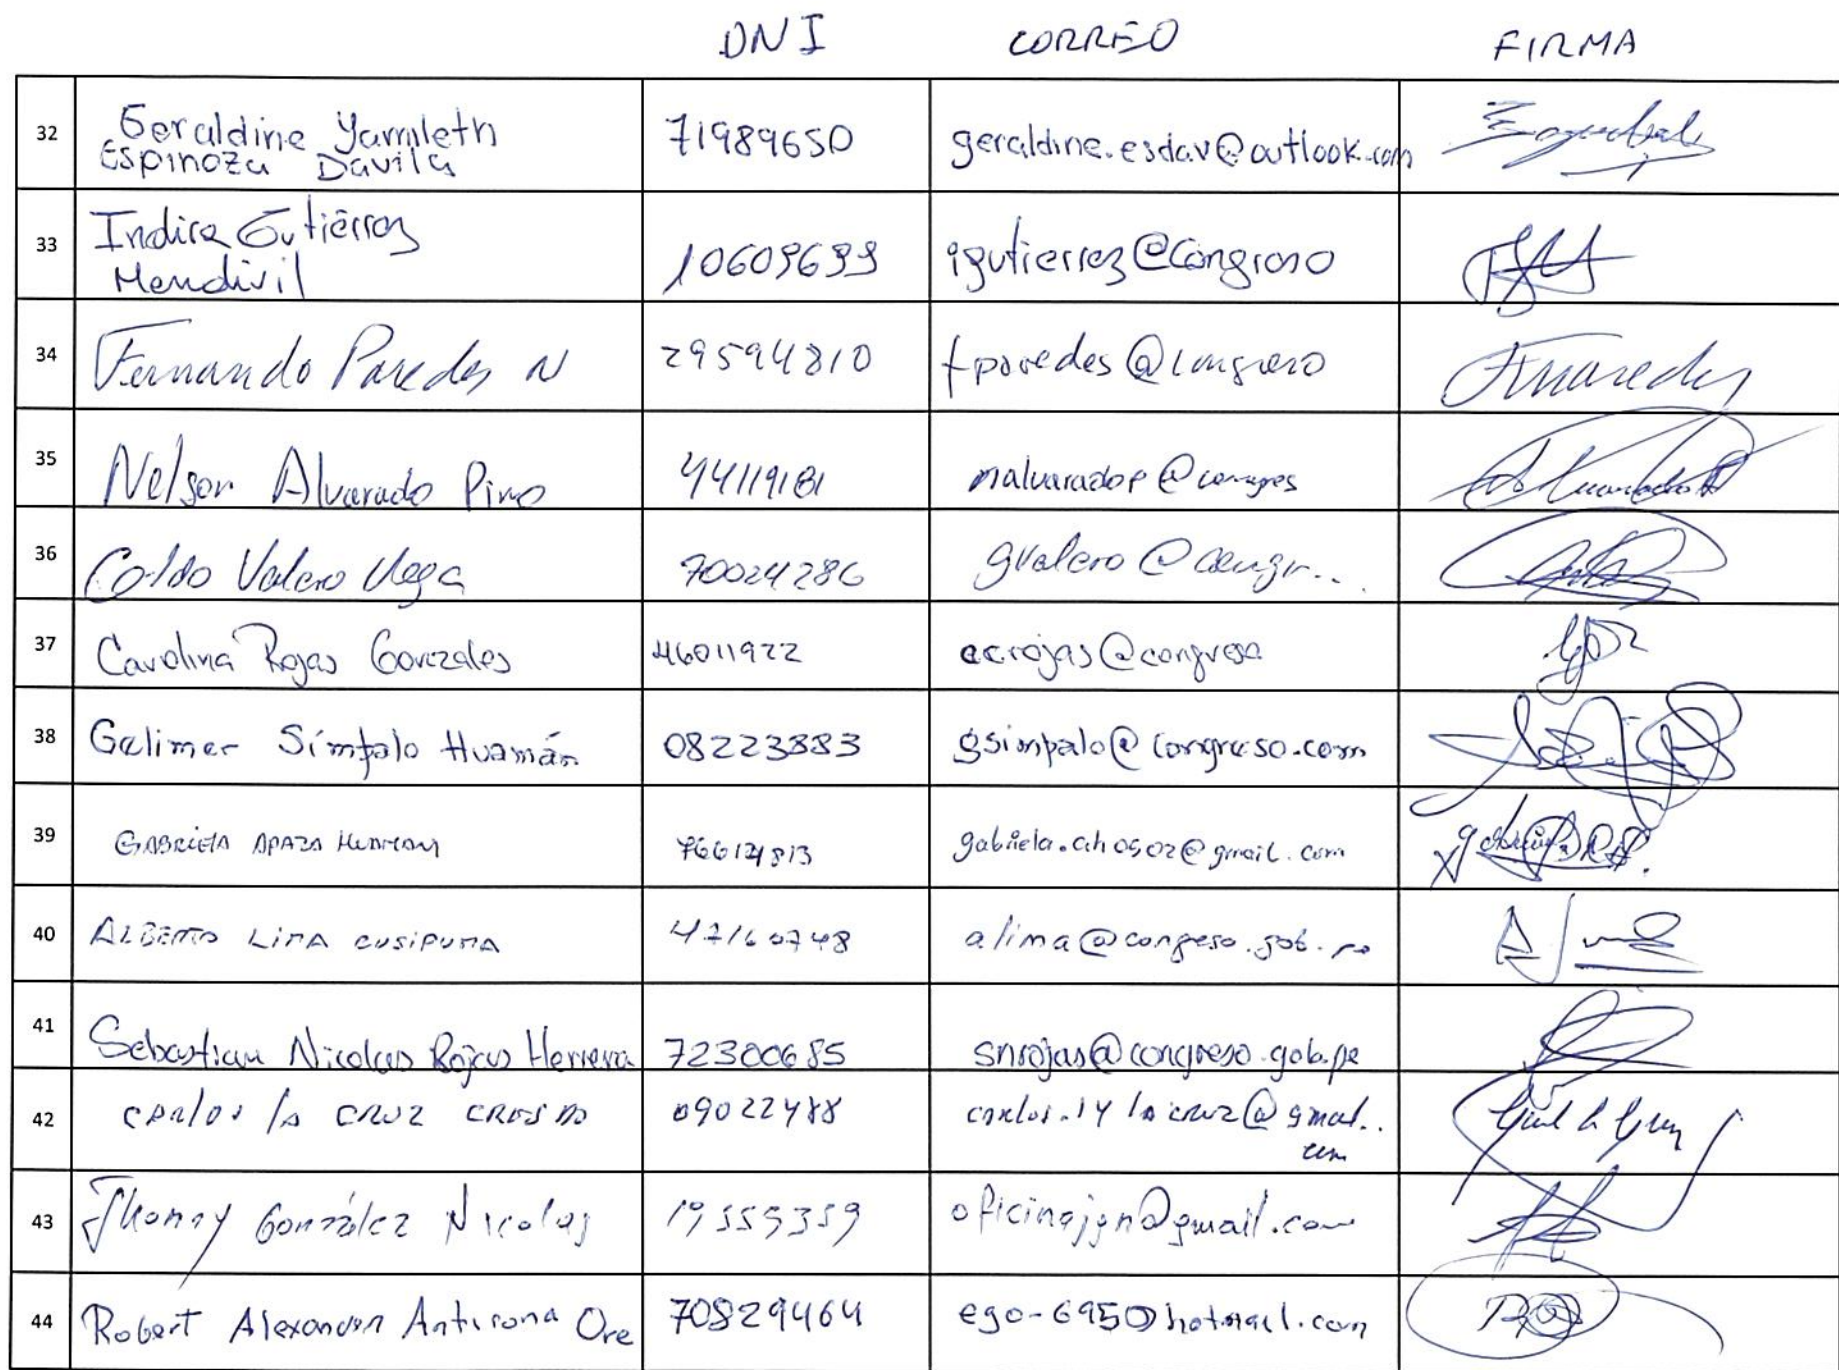 DNI CORREO FIRMA
32 Geraldine Yamileth 71989650 geraldine.esdav@outlook.com
Espinoza Davila
33 Indira Gutiérrez 10609699 igutierrez@Congreso
Mendivil
34 Fernando Paredes N 29594810 fparedes@congreso
35 Nelson Alvarado Pino 44119181 nalvaradop@congres
36 Valero Vega 70024286 gvalero@congr...
37 Carolina Rojas Gonzales 46011922 ccrojas@congreso
38 Galimer Símpalo Huamán 08223883 gsimpalo@congreso.com
39 GABRIELA APAZA HUAMAN gabriela.ah0502@gmail.com
40 ALBERTO LIMA CUSIPUMA 47160748 alima@congreso.gob.pe
41 Sebastian Nicolas Rojas Herrera 72300685 snrojas@congreso.gob.pe
42 CARLOS la CRUZ CRESPO 09022488 carlos.14lacruz@gmail..
com
43 Jhonny González Nicolas 19555359 oficinajgn@gmail.com
44 Robert Alexander Anticona Ore 70829464 ego-695@hotmail.com